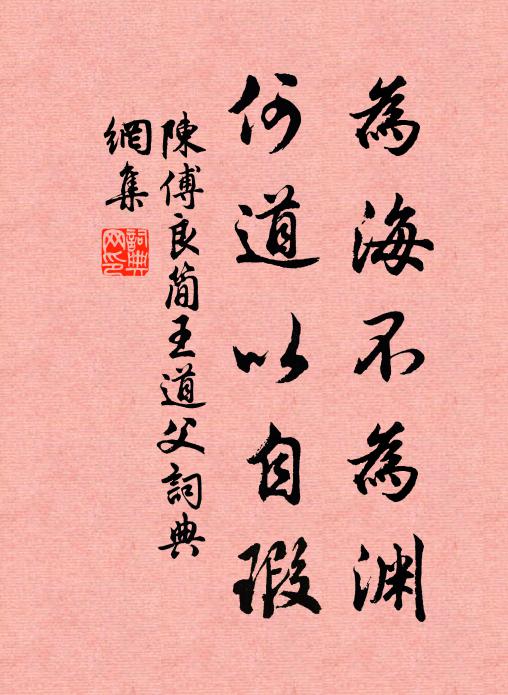 為海不為渊
何道以自瑕
陳傅良簡王道父詞典
網集
詞典網印